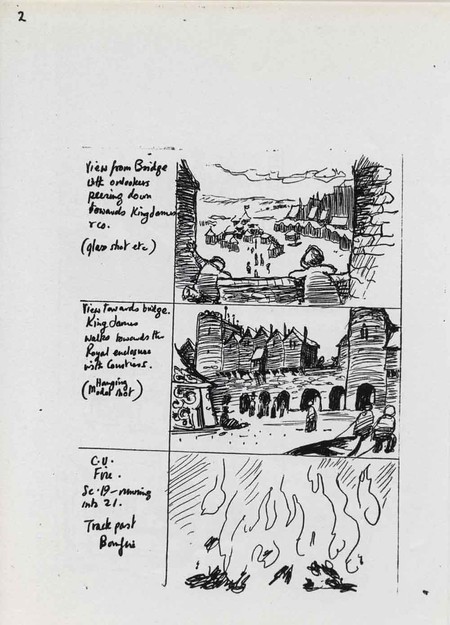 2
View from Bridge
with onlookers
peering down
towards King James
& co.
(glass shot etc)
View towards bridge.
King James
walks towards the
Royal enclosure
with Courtiers.
(Hanging
Model shot)
C.U.
Fire.
Sc. 19 - running
into 21.
Track past
Bonfire